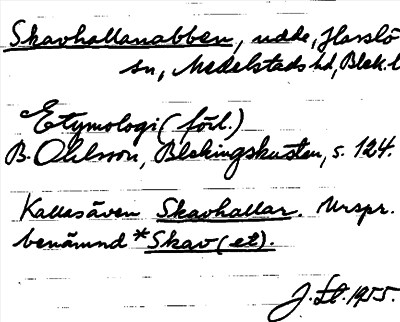 Skavhallanabben, udde, Hasslö
sn, Medelstads hd, Blek. l
Etymologi (förl.)
B. Ohlsson, Blekingskusten, s. 124.
Kallas även Skavhallar. Urspr.
benämnd *Skav(et).
J. St. 1955.